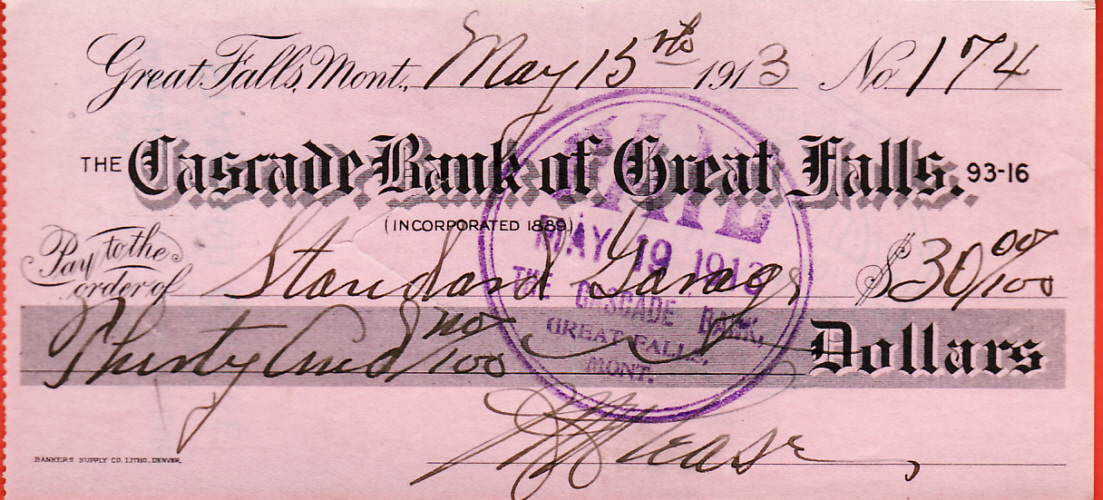 Great Falls, Mont., May 15th 1913 No. 174
THE Cascade Bank of Great Falls. 93-16
(INCORPORATED 1889.)
Pay to the order of Standard Garage $30 00/100
Thirty and no/100 Dollars
PAID
MAY 19 1913
THE CASCADE BANK,
GREAT FALLS,
MONT.
Lease
BANKERS SUPPLY CO. LITHO. DENVER.